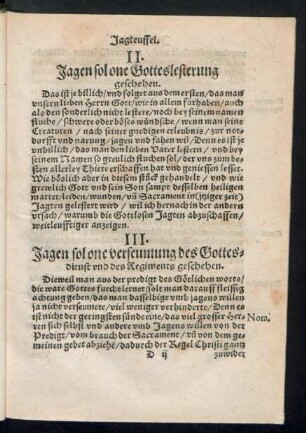 Jagteuffel.
II.
Jagen sol one Gotteslesterung
geschehen.
Das ist je billich/ vnd folget aus dem ersten/ das man
vnsern lieben Herrn Gott/ wie in allem fürhaben/ auch
als den sonderlich nicht lestere/ noch bey seinem namen
fluche/ schwere oder böses wündsche/ wenn man seine
Creaturen/ nach seiner gnedigen erleubnis/ zur not-
durfft vnd narung/ jagen vnd fahen wil/ Denn es ist je
vnbillich/ das man den lieben Vater lestern/ vnd bey
seinem Namen so greulich fluchen sol/ der vns zum be-
sten allerley Thiere erschaffen hat vnd geniessen lesset.
Wie böslich aber in diesem stück gehandelt/ vnd wie
grewlich Gott vnd sein Son sampt desselben heiligen
marter/ leiden/ wunden/ vñ Sacrament in jtziger zeit
Jagten gelestert wird/ wil ich hernach bey der andern
vrsach/ warumb die Gottlosen Jagten abzuschaffen/
weitleufftiger anzeigen.
III.
Jagen sol one verseumung des Gottes-
dienst vnd des Regiments geschehen.
Dieweil man aus der predigt des Götlichen worts/
die ware Gottes furcht lernet/ solte man darauff fleissig
achtung geben/ das man dasselbige vmb jagens willen
ja nicht verseumete/ viel weniger verhinderte/ Denn es
ist nicht der geringsten sünde eine/ das viel grosser Her-
Nota.
ren sich selbst vnd andere vmb Jagens willen von der
Predigt/ vom brauch der Sacrament/ vñ von dem ge-
meinen gebet abziehẽ/ dadurch der Regel Christi gantz
D ij
zuwider